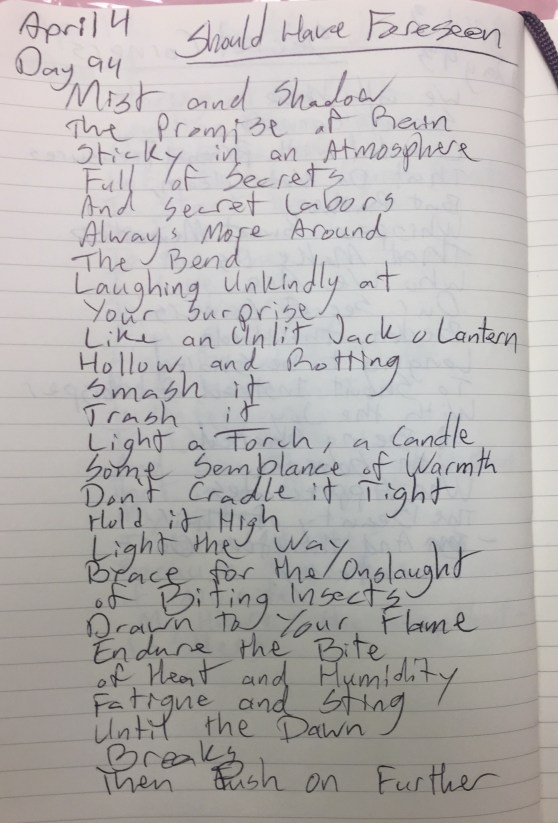 April 4
Should Have Foreseen
Day 94
Mist and Shadow
The Promise of Rain
Sticky in an Atmosphere
Full of Secrets
And Secret Labors
Always More Around
The Bend
Laughing Unkindly at
Your Surprise
Like an Unlit Jack o Lantern
Hollow and Rotting
Smash it
Trash it
Light a Torch, a Candle
Some Semblance of Warmth
Don't Cradle it Tight
Hold it High
Light the Way
Brace for the Onslaught
of Biting Insects
Drawn to Your Flame
Endure the Bite
of Heat and Humidity
Fatigue and Sting
Until the Dawn
Breaks
Then Push on Further